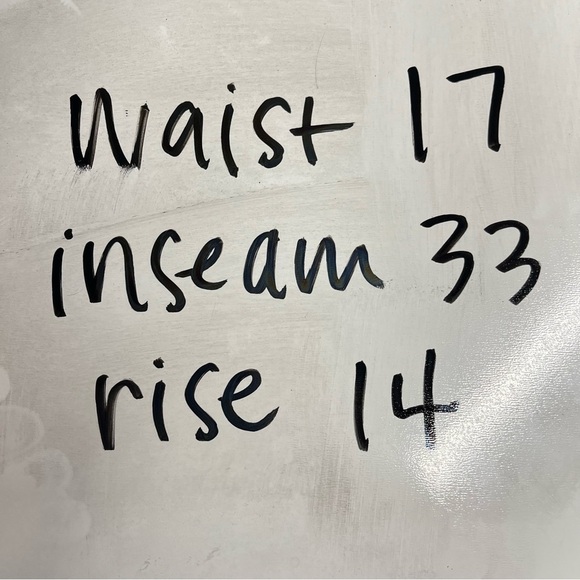 Waist 17
inseam 33
rise 14